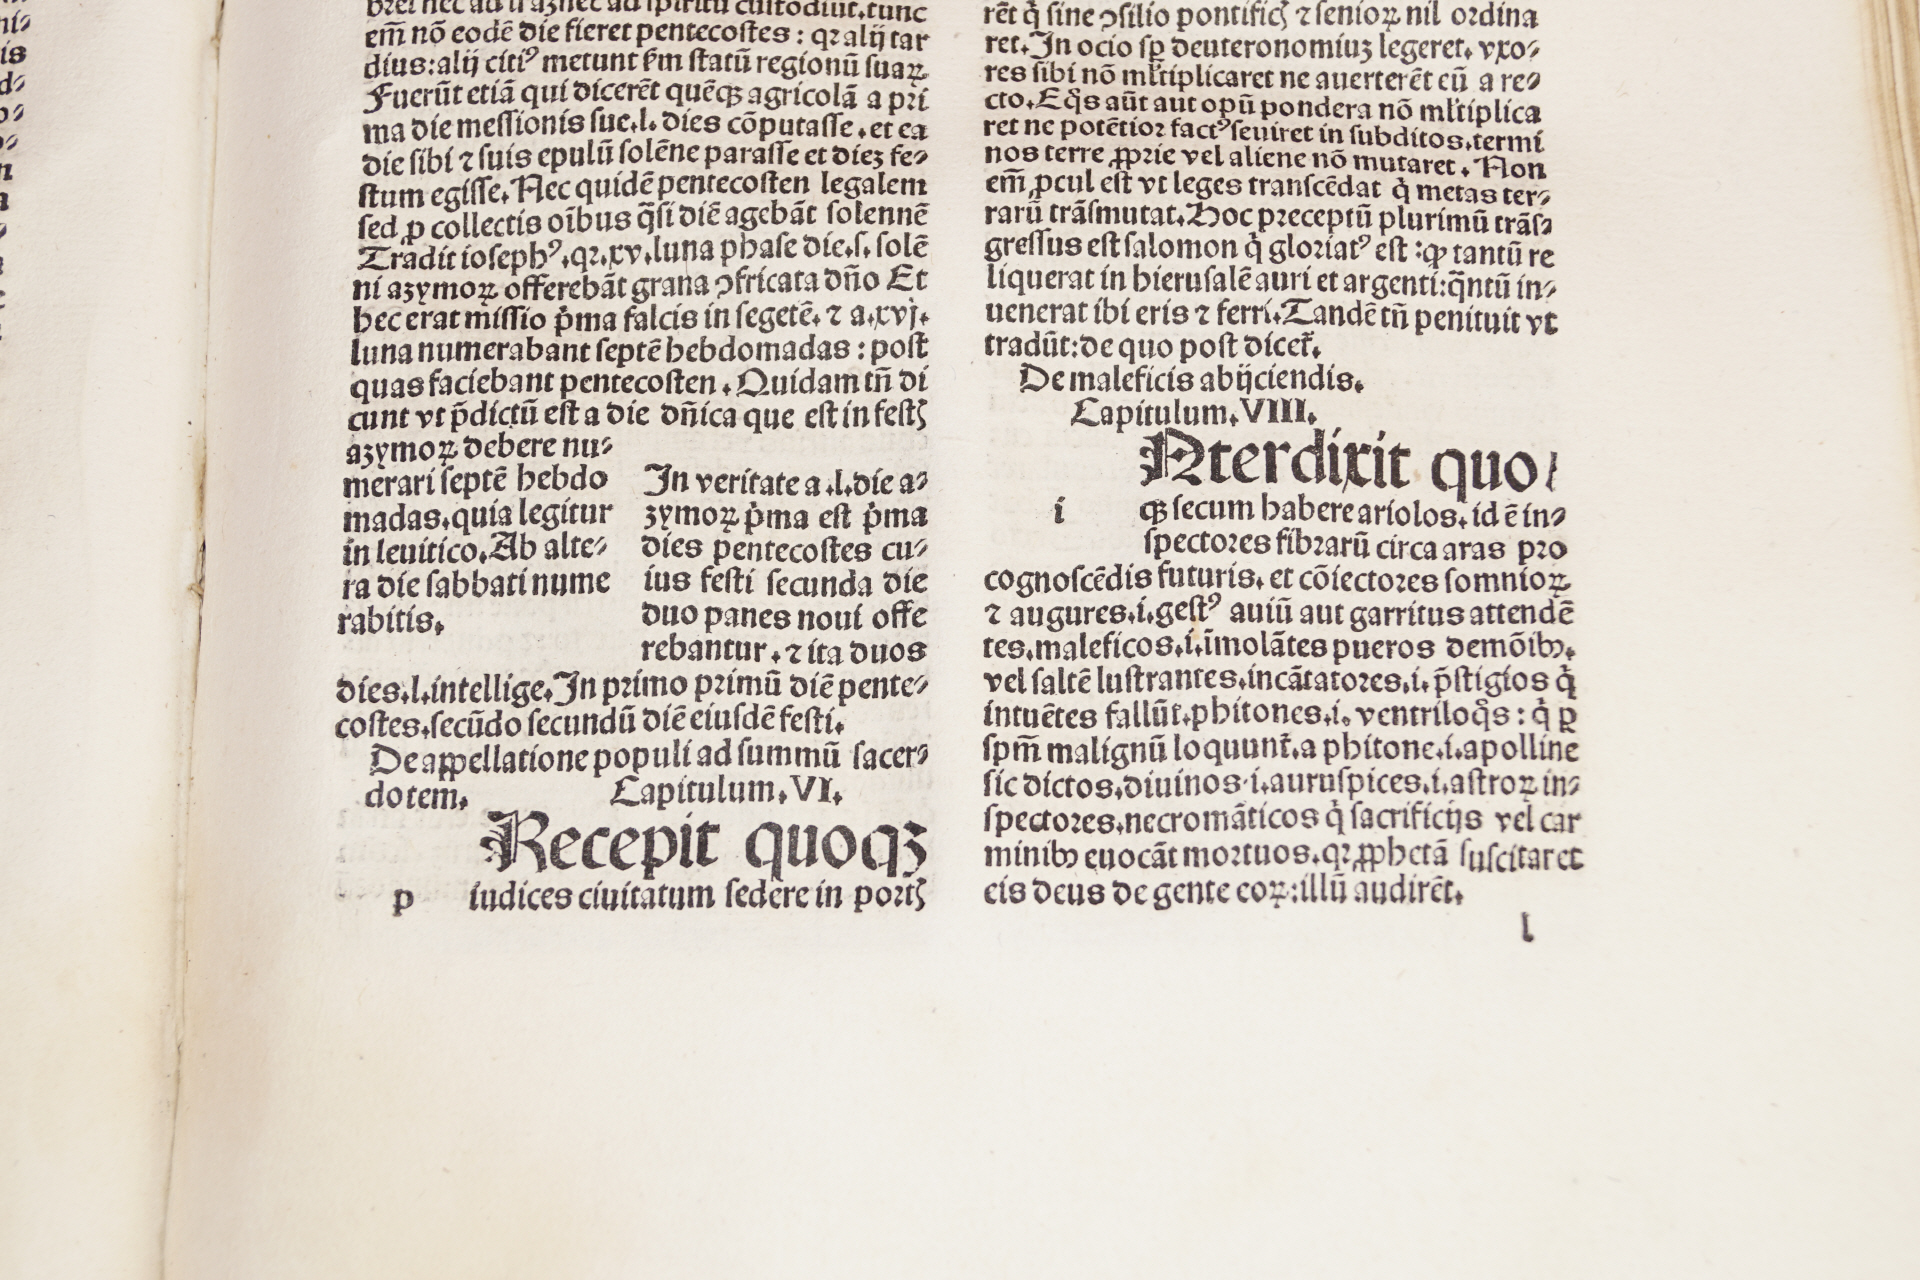 em̄ nō eodē die fieret pentecostes : qꝛ alij tar
dius:alij citiꝰ metunt ẜm statū regionū suaꝝ
Fuerūt etiā qui dicerēt quēqꝫ agricolā a pri
ma die messionis sue.l. dies cōputasse . et ea
die sibi ⁊ suis epulū solēne parasse et dieʒ fe⸗
stum egisse. Nec quidē pentecosten legalem
sed ꝓ collectis oībus q̄si diē agebāt solennē
Tradit iosephꝰ.qꝛ.xv.luna phase die.s. solē
ni azymoꝝ offerebāt grana ꝯfricata dn̄o Et
hec erat missio p̄ma falcis in segetē. ⁊ a.xvj.
luna numerabant septē hebdomadas : post
quas faciebant pentecosten . Quidam tn̄ di
cunt vt p̄dictū est a die dn̄ica que est in festꝭ
azymoꝝ debere nu⸗
merari septē hebdo
madas.quia legitur
in leuitico.Ab alte⸗
ra die sabbati nume
rabitis.
In veritate a .l.die a⸗
zymoꝝ p̄ma est p̄ma
dies pentecostes cu⸗
ius festi secunda die
duo panes noui offe
rebantur . ⁊ ita duos
dies.l.intellige.In primo primū diē pente⸗
costes.secūdo secundū diē eiusdē festi.
De appellatione populi ad summū sacer⸗
dotem. Capitulum.VI.
Recepit quoqꝫ
p iudices ciuitatum sedere in portꝭ
rēt q̇ sine ꝯsilio pontificꝭ ⁊ senioꝝ nil ordina
ret.In ocio sꝑ deuteronomiuʒ legeret. vxo⸗
res sibi nō ml̄tiplicaret ne auerterēt eū a re⸗
cto.Eq̊s aūt aut opū pondera nō ml̄tiplica
ret ne potētior factꝰ seuiret in subditos.termi
nos terre ꝓprie vel aliene nō mutaret . Non
em̄ ꝓcul est vt leges transcēdat q̇ metas ter⸗
rarū trāsmutat.Hoc preceptū plurimū trās⸗
gressus est salomon q̇ gloriatꝰ est :ꝙ tantū re
liquerat in hierusalē auri et argenti:q̄ntū in⸗
uenerat ibi eris ⁊ ferri.Tandē tn̄ penituit vt
tradūt:de quo post dicet̄.
De maleficis abijciendis.
Capitulum.VIII.
Nterdixit quo/
i qꝫ secum habere ariolos. id ē in⸗
spectores fibrarū circa aras pro
cognoscēdis futuris. et cōiectores somnioꝝ
⁊ augures.i.gestꝰ auiū aut garritus attendē
tes.maleficos.i.īmolātes pueros demōibꝫ.
vel saltē lustrantes.incātatores.i. p̄stigios q̇
intuētes fallūt.phitones.i. ventriloq̊s : q̇ ꝑ
spm̄ malignū loquunt̄.a phitone.i.apolline
sic dictos.diuinos.i.auruspices.i.astroꝝ in⸗
spectores.necromāticos q̇ sacrificijs vel car
minibꝫ euocāt mortuos.qꝛ ꝓphetā suscitaret
eis deus de gente eoꝝ:illū audirēt.
l